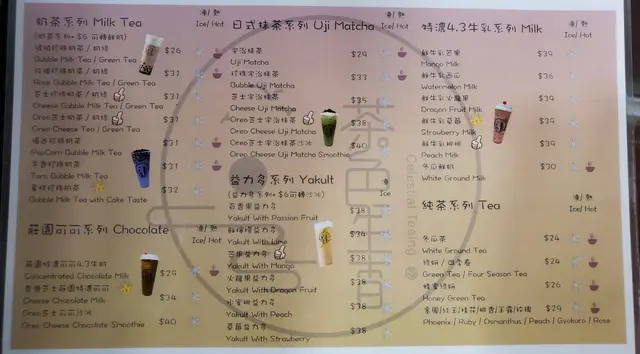 奶茶系列 Milk Tea
凍/熱
Ice/Hot
(奶茶系列+$6可轉鮮奶)
琥珀珍珠奶茶/奶綠 $26
Bubble Milk Tea / Green Tea
玫瑰珍珠奶茶/奶綠 $31
Rose Bubble Milk Tea / Green Tea
芝士珍珠奶茶/奶綠 $31
Cheese Bubble Milk Tea / Green Tea
Oreo芝士奶茶/奶綠 $31
Oreo Cheese Tea / Green Tea
爆谷珍珠奶茶 $31
PopCorn Bubble Milk Tea
芋香珍珠奶茶 $31
Taro Bubble Milk Tea
蛋糕珍珠奶茶 $32
Bubble Milk Tea with Cake Taste
莊園可可系列 Chocolate
凍/熱
Ice/Hot
莊園特濃可可4.3牛奶 $29
Concentrated Chocolate Milk
香濃芝士莊園特濃可可 $34
Cheese Chocolate Milk
Oreo芝士可可沙冰 $40
Oreo Cheese Chocolate Smoothie
日式抹茶系列 Uji Matcha
凍/熱
Ice/Hot
宇治抹茶 $29
Uji Matcha
珍珠宇治抹茶 $33
Bubble Uji Matcha
芝士宇治抹茶 $35
Cheese Uji Matcha
Oreo芝士宇治抹茶 $38
Oreo Cheese Uji Matcha
Oreo芝士宇治抹茶沙冰 $40
Oreo Cheese Uji Matcha Smoothie
益力多系列 Yakult
凍
Ice
(益力多系列+$6可轉沙冰)
百香果益力多 $38
Yakult With Passion Fruit
鮮檸檬益力多 $34
Yakult With Lime
芒果益力多 $38
Yakult With Mango
火龍果益力多 $38
Yakult With Dragon Fruit
水蜜桃益力多 $38
Yakult With Peach
草莓益力多 $38
Yakult With Strawberry
特濃4.3牛乳系列 Milk
凍/熱
Ice/Hot
鮮牛乳芒果 $39
Mango Milk
鮮牛乳西瓜 $36
Watermelon Milk
鮮牛乳火龍果 $39
Dragon Fruit Milk
鮮牛乳草莓 $39
Strawberry Milk
鮮牛乳水蜜桃 $39
Peach Milk
冬瓜鮮奶 $30
White Ground Milk
純茶系列 Tea
凍/熱
Ice/Hot
冬瓜茶 $24
White Ground Tea
綠茶/四季春 $24
Green Tea / Four Season Tea
蜂蜜綠茶 $26
Honey Green Tea
$29
Phoenix / Ruby / Osmanthus / Peach / Gyokuro / Rose
Celestial Teaing